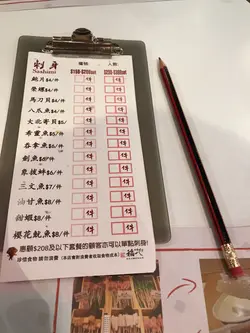 刺身
Sashimi
檯號: 人數:
$168-$208set $258-$308set
鮑片$4/件 件 件
柴螺$4/件 件 件
馬刀貝$4/件 件 件
八爪魚$4/件 件 件
大北寄貝$5/件 件 件
希靈魚$5/件 件 件
吞拿魚$6/件 件 件
劍魚$6/件 件 件
象拔蚌$6/件 件 件
三文魚$7/件 件 件
油甘魚$8/件 件 件
甜蝦$8/件 件 件
櫻花魷魚$8/件 件 件
惠顧$208及以下套餐的顧客亦可以單點刺身!
珍惜食物 緣份消費